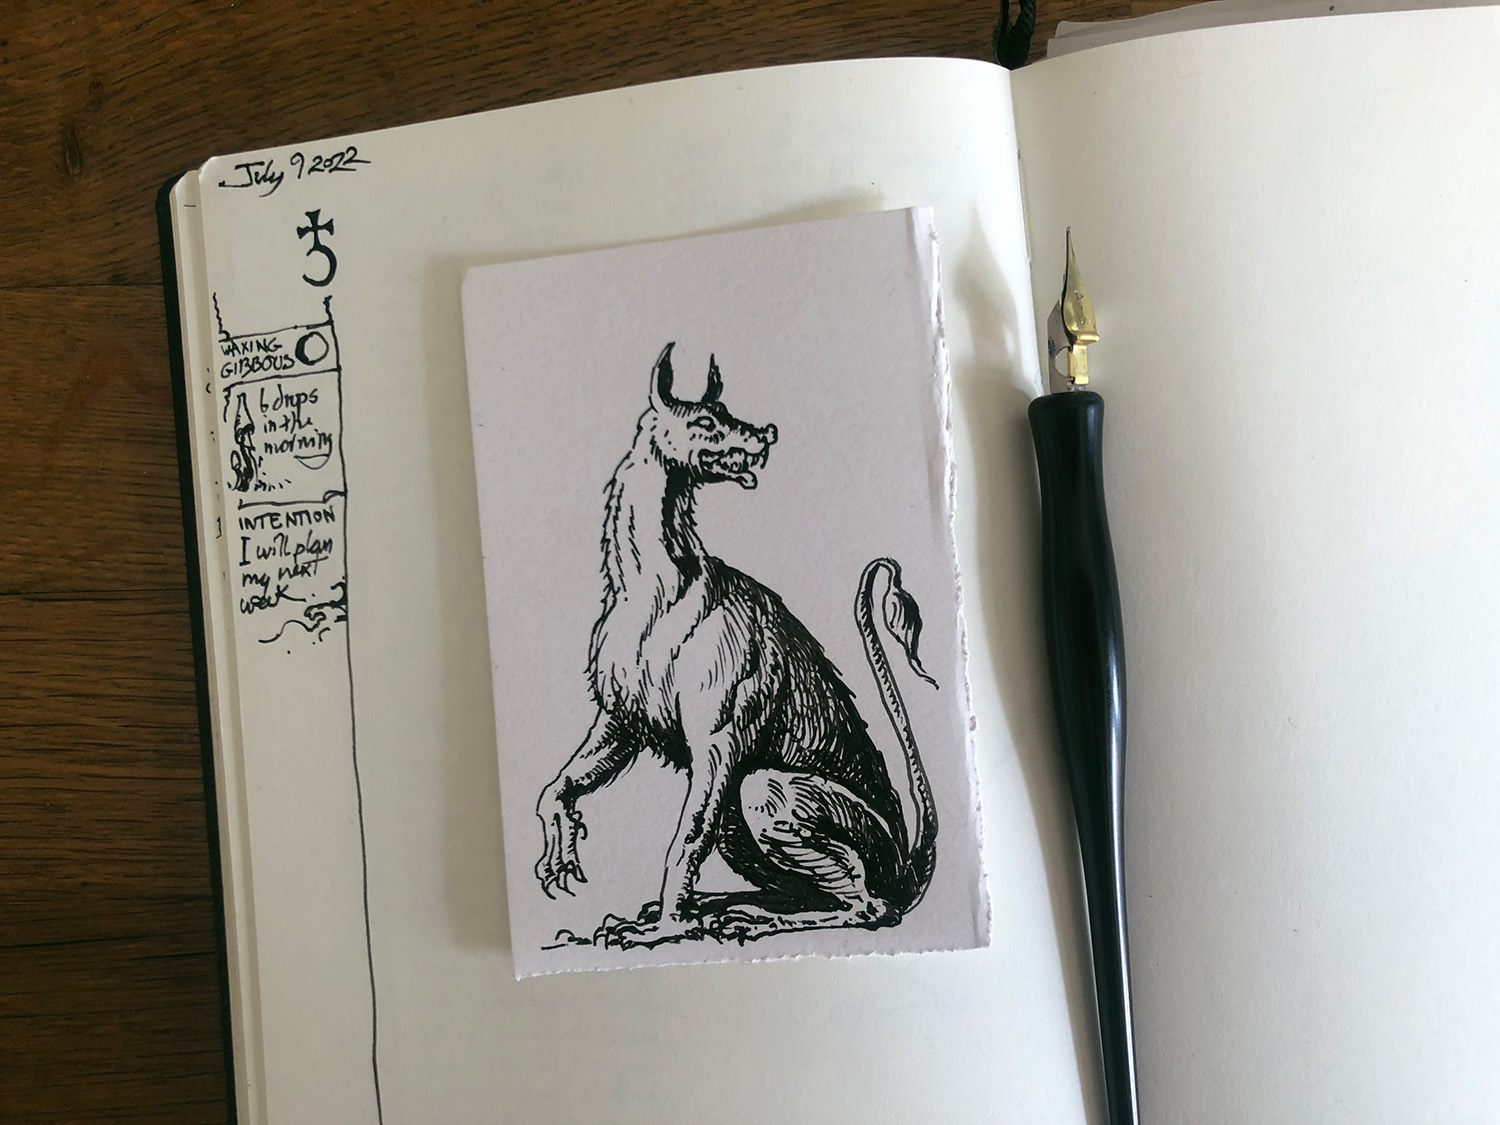 July 9 2022
WAXING
GIBBOUS
6 drops
in the
morning
INTENTION
I will plan
my next
week.